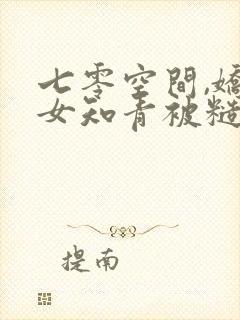 七零空間,嬌
女知青被糙
提南